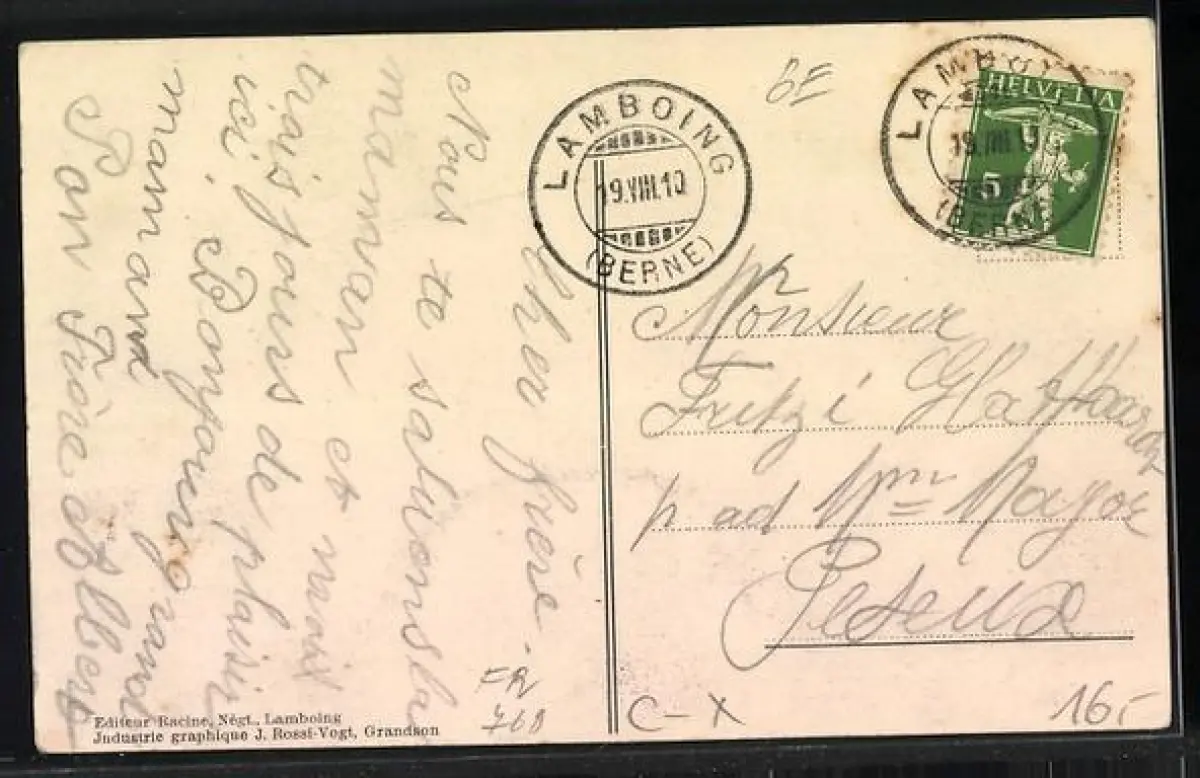 Cher frère.
Nous te saluons
maman et moi
trais jours de plaisir
ici. Bonjour grand
maman
Ton Frère Albert
LAMBOING
19.VIII.10
(BERNE)
6E
LAMBOI
19.VIII.1
(BERNE)
HELVETIA
5
Monsieur
Fritz
p ad Mme
Peseux
FR
C-X
16.-
Editeur Racine, Négt., Lamboing
Industrie graphique J. Rossi-Vogt, Grandson